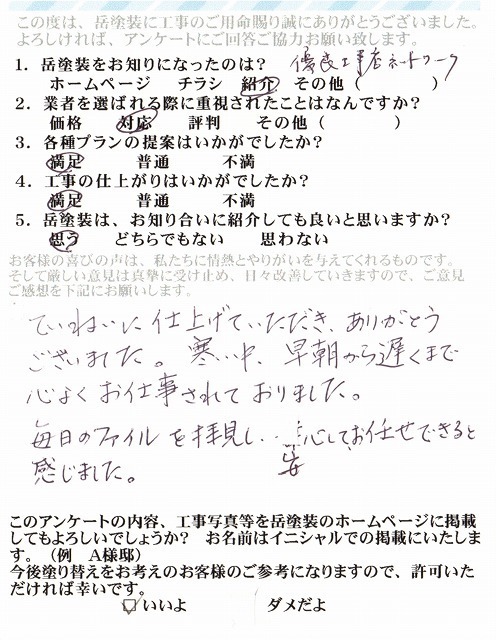 この度は、岳塗装に工事のご用命賜り誠にありがとうございました。
よろしければ、アンケートにご回答ご協力お願い致します。
1．岳塗装をお知りになったのは？ 優良工事店ネットワーク
ホームページ チラシ 紹介 その他（ ）
2．業者を選ばれる際に重視されたことはなんですか？
価格 対応 評判 その他（ ）
3．各種プランの提案はいかがでしたか？
満足 普通 不満
4．工事の仕上がりはいかがでしたか？
満足 普通 不満
5．岳塗装は、お知り合いに紹介しても良いと思いますか？
思う どちらでもない 思わない
お客様の喜びの声は、私たちに情熱とやりがいを与えてくれるものです。
そして厳しい意見は真摯に受け止め、日々改善していきますので、ご意見
ご感想を下記にお願いします。
ていねいに仕上げていただき、ありがとう
ございました。寒い中、早朝から遅くまで
心よくお仕事されておりました。
毎日のファイルを拝見し、安心してお任せできると
感じました。
このアンケートの内容、工事写真等を岳塗装のホームページに掲載
してもよろしいでしょうか？ お名前はイニシャルでの掲載にいたしま
す。（例 A様邸）
今後塗り替えをお考えのお客様のご参考になりますので、許可いた
だければ幸いです。
いいよ ダメだよ